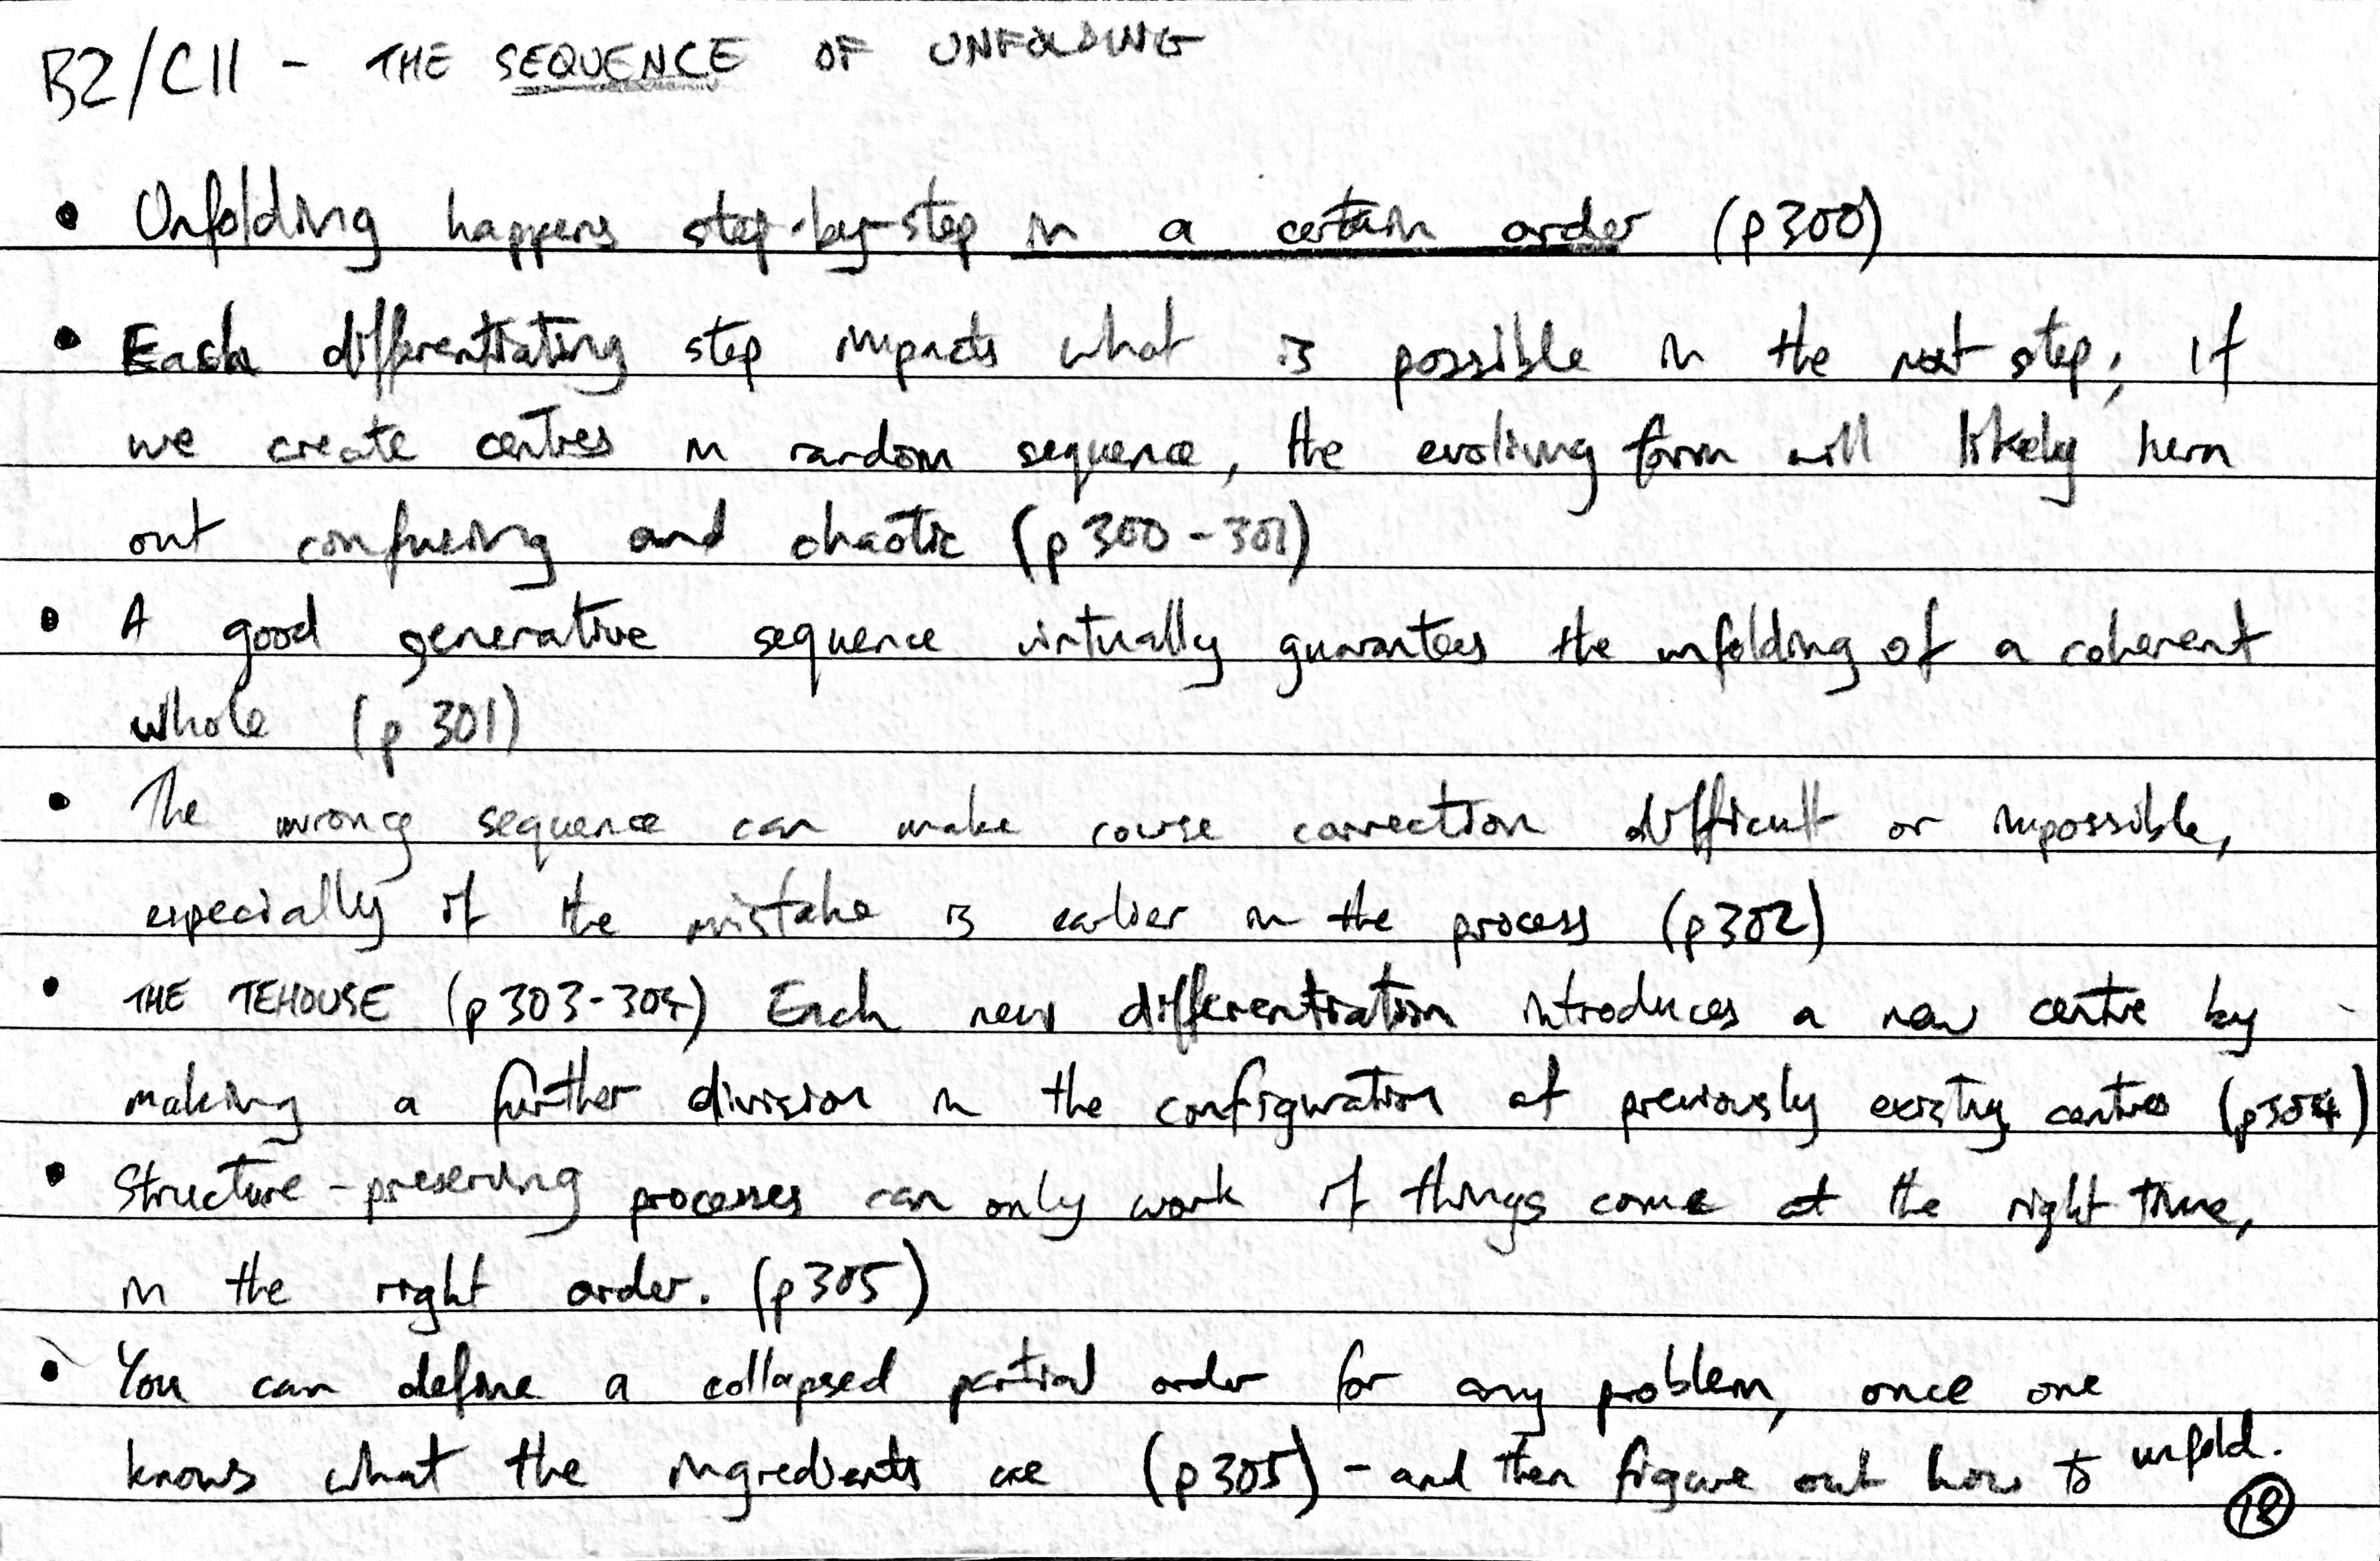 B2/C11 - THE SEQUENCE OF UNFOLDING
• Unfolding happens step-by-step in a certain order (p300)
• Each differentiating step impacts what is possible in the next step; if
we create centres in random sequence, the evolving form will likely turn
out confusing and chaotic (p300-301)
• A good generative sequence virtually guarantees the unfolding of a coherent
whole (p301)
• The wrong sequence can make course correction difficult or impossible,
especially if the mistake is earlier in the process (p302)
• THE TEHOUSE (p303-304) Each new differentiation introduces a new centre by
making a further division in the configuration of previously existing centres (p304)
• Structure-preserving processes can only work if things come at the right time,
in the right order. (p305)
• You can define a collapsed partial order for any problem, once one
knows what the ingredients are (p305) - and then figure out how to unfold.
18